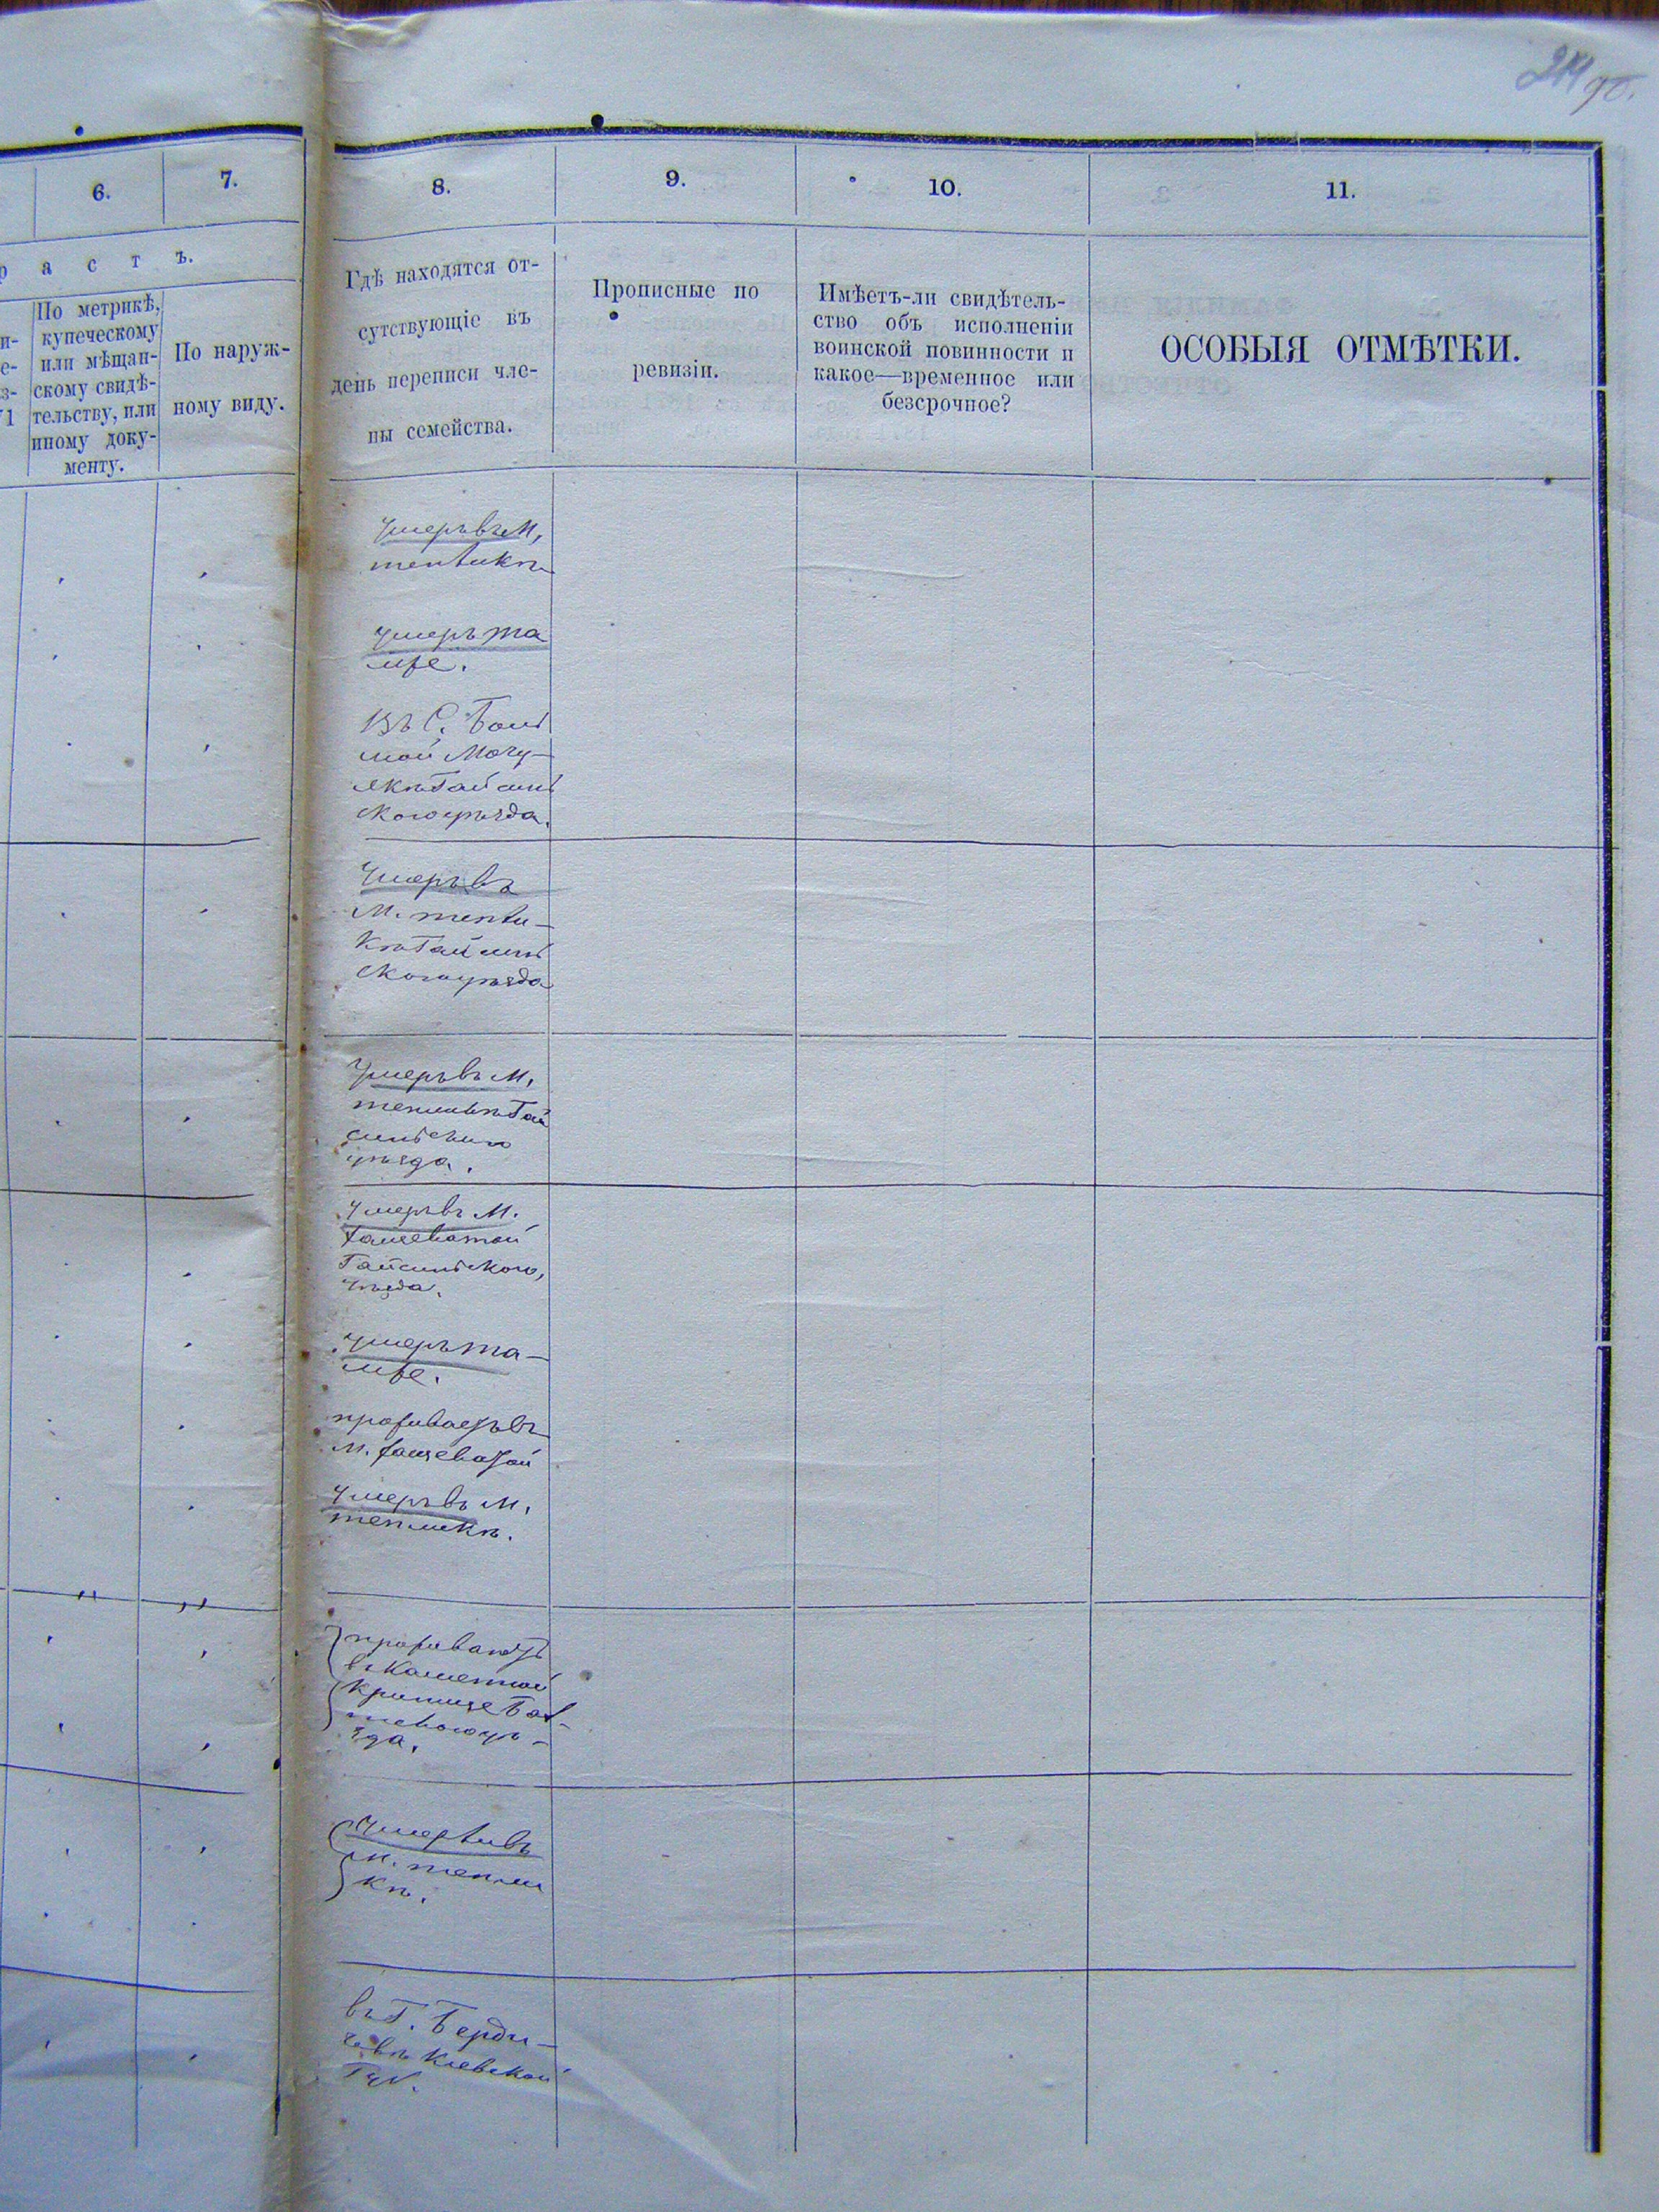 214 об.
6.
7.
8.
9.
10.
11.
р а с т ъ.
По метрикѣ,
купеческому
или мѣщан-
скому свидѣ-
тельству, или
иному доку-
менту.
По наруж-
ному виду.
Гдѣ находятся от-
сутствующіе въ
день переписи чле-
ны семейства.
Прописные по
ревизіи.
Имѣетъ-ли свидѣтель-
ство объ исполненіи
воинской повинности и
какое—временное или
безсрочное?
ОСОБЫЯ ОТМѢТКИ.
Умеръ въ М.
тепликѣ
умеръ та
мже.
Въ С. Боль
шой Мочу-
лкѣ Гайсинь
скогоуѣзда.
Умеръ въ
М. тепли-
кѣ Гайсинь
скогоуѣзда
Умеръ въ М.
тепликѣ Гай
синьскаго
уѣзда.
Умеръ въ М.
хащеватой
Гайсиньского,
уѣзда.
умеръ та-
мже.
проживаетъ въ
м. хащеватой
Умеръ въ М.
тепликѣ.
проживаютъ
въ Каменной
Криницѣ Бал-
тскогоуѣ-
зда.
Умерли въ
м. тепли
кѣ.
въ Г. Берди-
чевѣ Кіевской
Губ.